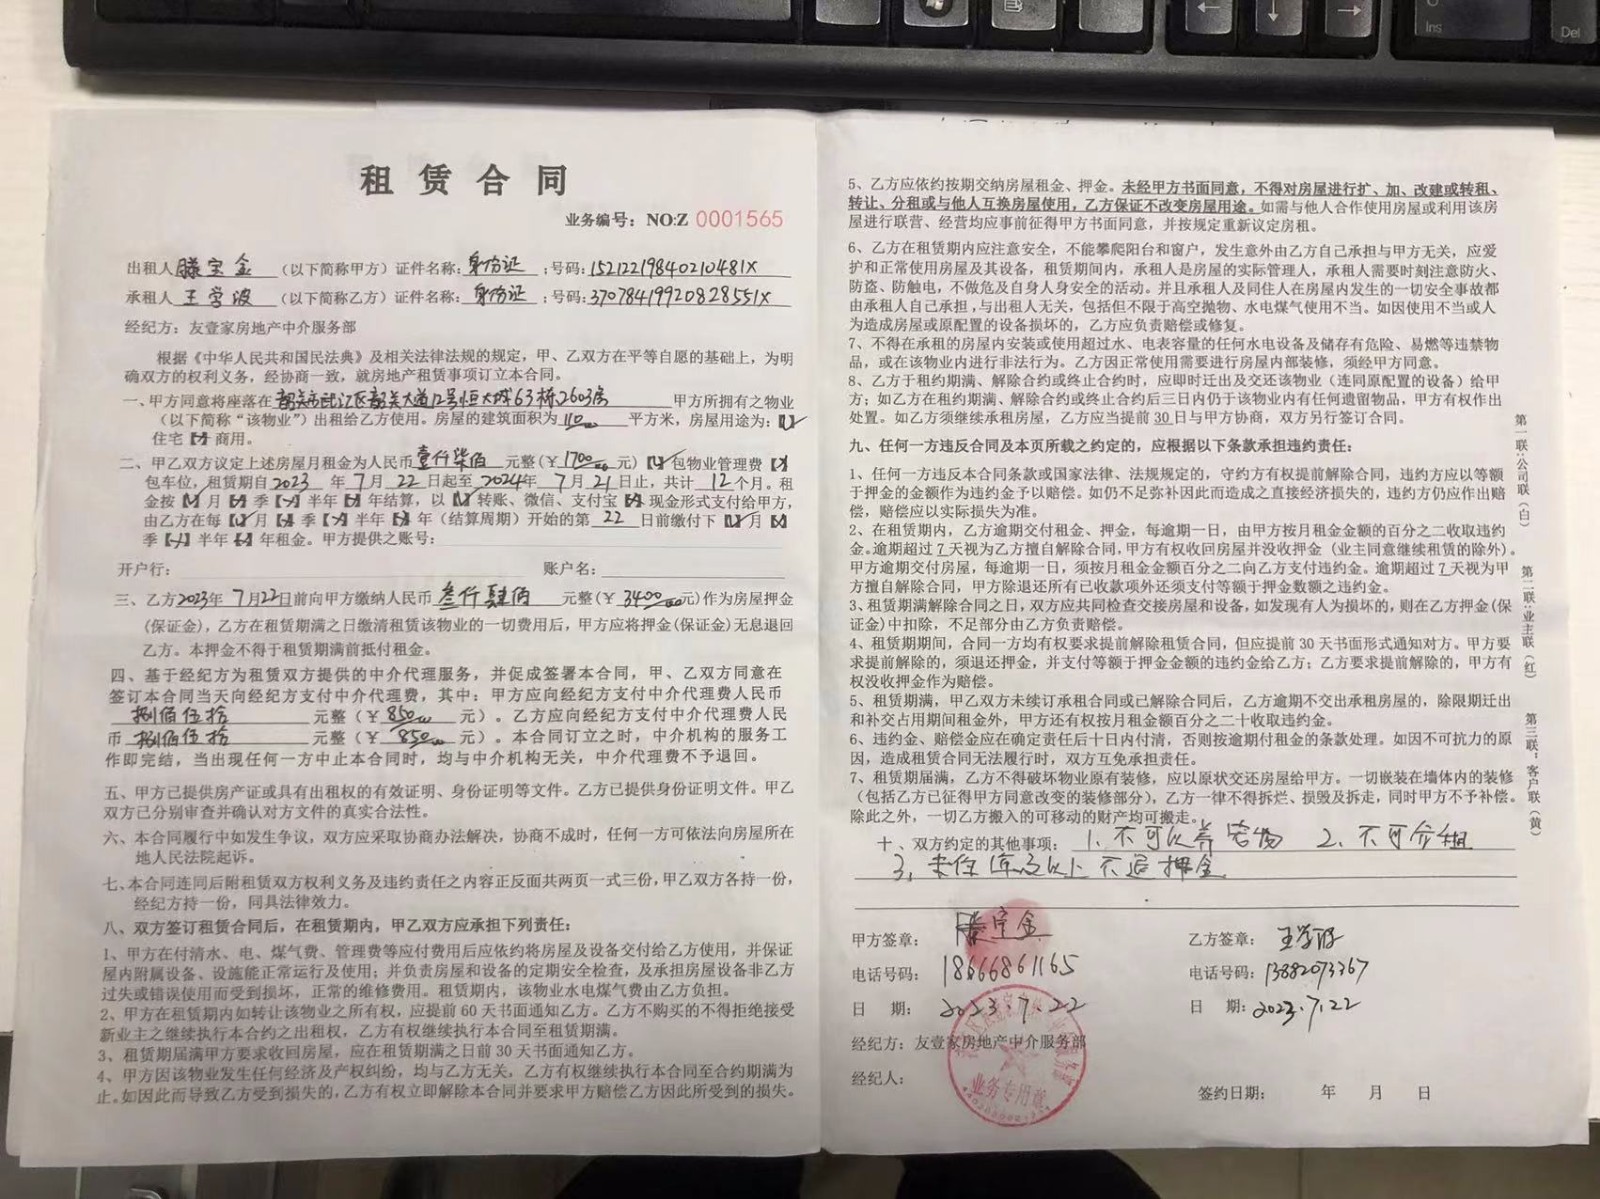 租赁合同
业务编号：NO:Z 0001565
出租人 滕宝金 （以下简称甲方）证件名称：身份证 ；号码：15212219840210481X
承租人 王学波 （以下简称乙方）证件名称：身份证 ；号码：37078419920828551X
经纪方：友壹家房地产中介服务部
根据《中华人民共和国民法典》及相关法律法规的规定，甲、乙双方在平等自愿的基础上，为明
确双方的权利义务，经协商一致，就房地产租赁事项订立本合同。
一、甲方同意将座落在 韶关市武江区韶关大道12号恒大城63栋2603房 甲方所拥有之物业
（以下简称“该物业”）出租给乙方使用。房屋的建筑面积为 110 平方米，房屋用途为：【√】
住宅【】商用。
二、甲乙双方议定上述房屋月租金为人民币 壹仟柒佰 元整（￥ 1700.00 元）【√】包物业管理费【】
包车位，租赁期自 2023 年 7 月 22 日起至 2024 年 7 月 21 日止，共计 12 个月。租
金按【√】月【】季【】半年【】年结算，以【√】转账、微信、支付宝【】现金形式支付给甲方，
由乙方在每【√】月【】季【】半年【】年（结算周期）开始的第 22 日前缴付下【√】月【】
季【】半年【】年租金。甲方提供之账号：
开户行： 账户名：
三、乙方 2023 年 7 月 22 日前向甲方缴纳人民币 叁仟肆佰 元整（￥ 3400.00 元）作为房屋押金
（保证金），乙方在租赁期满之日缴清租赁该物业的一切费用后，甲方应将押金(保证金)无息退回
乙方。本押金不得于租赁期满前抵付租金。
四、基于经纪方为租赁双方提供的中介代理服务，并促成签署本合同，甲、乙双方同意在
签订本合同当天向经纪方支付中介代理费，其中：甲方应向经纪方支付中介代理费人民币
捌佰伍拾 元整（￥ 850.00 元）。乙方应向经纪方支付中介代理费人民
币 捌佰伍拾 元整（￥ 850.00 元）。本合同订立之时，中介机构的服务工
作即完结，当出现任何一方中止本合同时，均与中介机构无关，中介代理费不予退回。
五、甲方已提供房产证或具有出租权的有效证明、身份证明等文件。乙方已提供身份证明文件。甲乙
双方已分别审查并确认对方文件的真实合法性。
六、本合同履行中如发生争议，双方应采取协商办法解决，协商不成时，任何一方可依法向房屋所在
地人民法院起诉。
七、本合同连同后附租赁双方权利义务及违约责任之内容正反面共两页一式三份，甲乙双方各持一份，
经纪方持一份，同具法律效力。
八、双方签订租赁合同后，在租赁期内，甲乙双方应承担下列责任：
1、甲方在付清水、电、煤气费、管理费等应付费用后应依约将房屋及设备交付给乙方使用，并保证
屋内附属设备、设施能正常运行及使用；并负责房屋和设备的定期安全检查，及承担房屋设备非乙方
过失或错误使用而受到损坏，正常的维修费用。租赁期内，该物业水电煤气费由乙方负担。
2、甲方在租赁期内如转让该物业之所有权，应提前60天书面通知乙方。乙方不购买的不得拒绝接受
新业主之继续执行本合约之出租权，乙方有权继续执行本合同至租赁期满。
3、租赁期届满甲方要求收回房屋，应在租赁期满之日前30天书面通知乙方。
4、甲方因该物业发生任何经济及产权纠纷，均与乙方无关，乙方有权继续执行本合同至合约期满为
止。如因此而导致乙方受到损失的，乙方有权立即解除本合同并要求甲方赔偿乙方因此所受到的损失。
5、乙方应依约按期交纳房屋租金、押金。未经甲方书面同意，不得对房屋进行扩、加、改建或转租、
转让、分租或与他人互换房屋使用，乙方保证不改变房屋用途。如需与他人合作使用房屋或利用该房
屋进行联营、经营均应事前征得甲方书面同意，并按规定重新议定房租。
6、乙方在租赁期内应注意安全，不能攀爬阳台和窗户，发生意外由乙方自己承担与甲方无关，应爱
护和正常使用房屋及其设备，租赁期间内，承租人是房屋的实际管理人，承租人需要时刻注意防火、
防盗、防触电，不做危及自身人身安全的活动。并且承租人及同住人在房屋内发生的一切安全事故都
由承租人自己承担，与出租人无关，包括但不限于高空抛物、水电煤气使用不当。如因使用不当或人
为造成房屋或原配置的设备损坏的，乙方应负责赔偿或修复。
7、不得在承租的房屋内安装或使用超过水、电表容量的任何水电设备及储存有危险、易燃等违禁物
品，或在该物业内进行非法行为。乙方因正常使用需要进行房屋内部装修，须经甲方同意。
8、乙方于租约期满、解除合约或终止合约时，应即时迁出及交还该物业（连同原配置的设备）给甲
方；如乙方在租约期满、解除合约或终止合约后三日内仍于该物业内有任何遗留物品，甲方有权作出
处置。如乙方须继续承租房屋，乙方应当提前30日与甲方协商，双方另行签订合同。
九、任何一方违反合同及本页所载之约定的，应根据以下条款承担违约责任：
1、任何一方违反本合同条款或国家法律、法规规定的，守约方有权提前解除合同，违约方应以等额
于押金的金额作为违约金予以赔偿。如仍不足弥补因此而造成之直接经济损失的，违约方仍应作出赔
偿，赔偿应以实际损失为准。
2、在租赁期内，乙方逾期交付租金、押金，每逾期一日，由甲方按月租金金额的百分之二收取违约
金。逾期超过7天视为乙方擅自解除合同，甲方有权收回房屋并没收押金（业主同意继续租赁的除外）。
甲方逾期交付房屋，每逾期一日，须按月租金金额百分之二向乙方支付违约金。逾期超过7天视为甲
方擅自解除合同，甲方除退还所有已收款项外还须支付等额于押金数额之违约金。
3、租赁期满解除合同之日，双方应共同检查交接房屋和设备，如发现有人为损坏的，则在乙方押金(保
证金)中扣除，不足部分由乙方负责赔偿。
4、租赁期期间，合同一方均有权要求提前解除租赁合同，但应提前30天书面形式通知对方。甲方要
求提前解除的，须退还押金，并支付等额于押金金额的违约金给乙方；乙方要求提前解除的，甲方有
权没收押金作为赔偿。
5、租赁期满，甲乙双方未续订承租合同或已解除合同后，乙方逾期不交出承租房屋的，除限期迁出
和补交占用期间租金外，甲方还有权按月租金额百分之二十收取违约金。
6、违约金、赔偿金应在确定责任后十日内付清，否则按逾期付租金的条款处理。如因不可抗力的原
因，造成租赁合同无法履行时，双方互免承担责任。
7、租赁期届满，乙方不得破坏物业原有装修，应以原状交还房屋给甲方。一切嵌装在墙体内的装修
（包括乙方已征得甲方同意改变的装修部分），乙方一律不得拆烂、损毁及拆走，同时甲方不予补偿。
除此之外，一切乙方搬入的可移动的财产均可搬走。
十、双方约定的其他事项：1、不可以养宠物 2、不可分租
3、未住 以上不退押金
甲方签章： 滕宝金 乙方签章： 王学波
电话号码： 18666861165 电话号码：13882073367
日 期： 2023.7.22 日 期：2023.7.22
经纪方：友壹家房地产中介服务部
经纪人：
签约日期： 年 月 日
业务专用章
第一联：公司联（白）
第二联：业主联（红）
第三联：客户联（黄）
Ins
Del